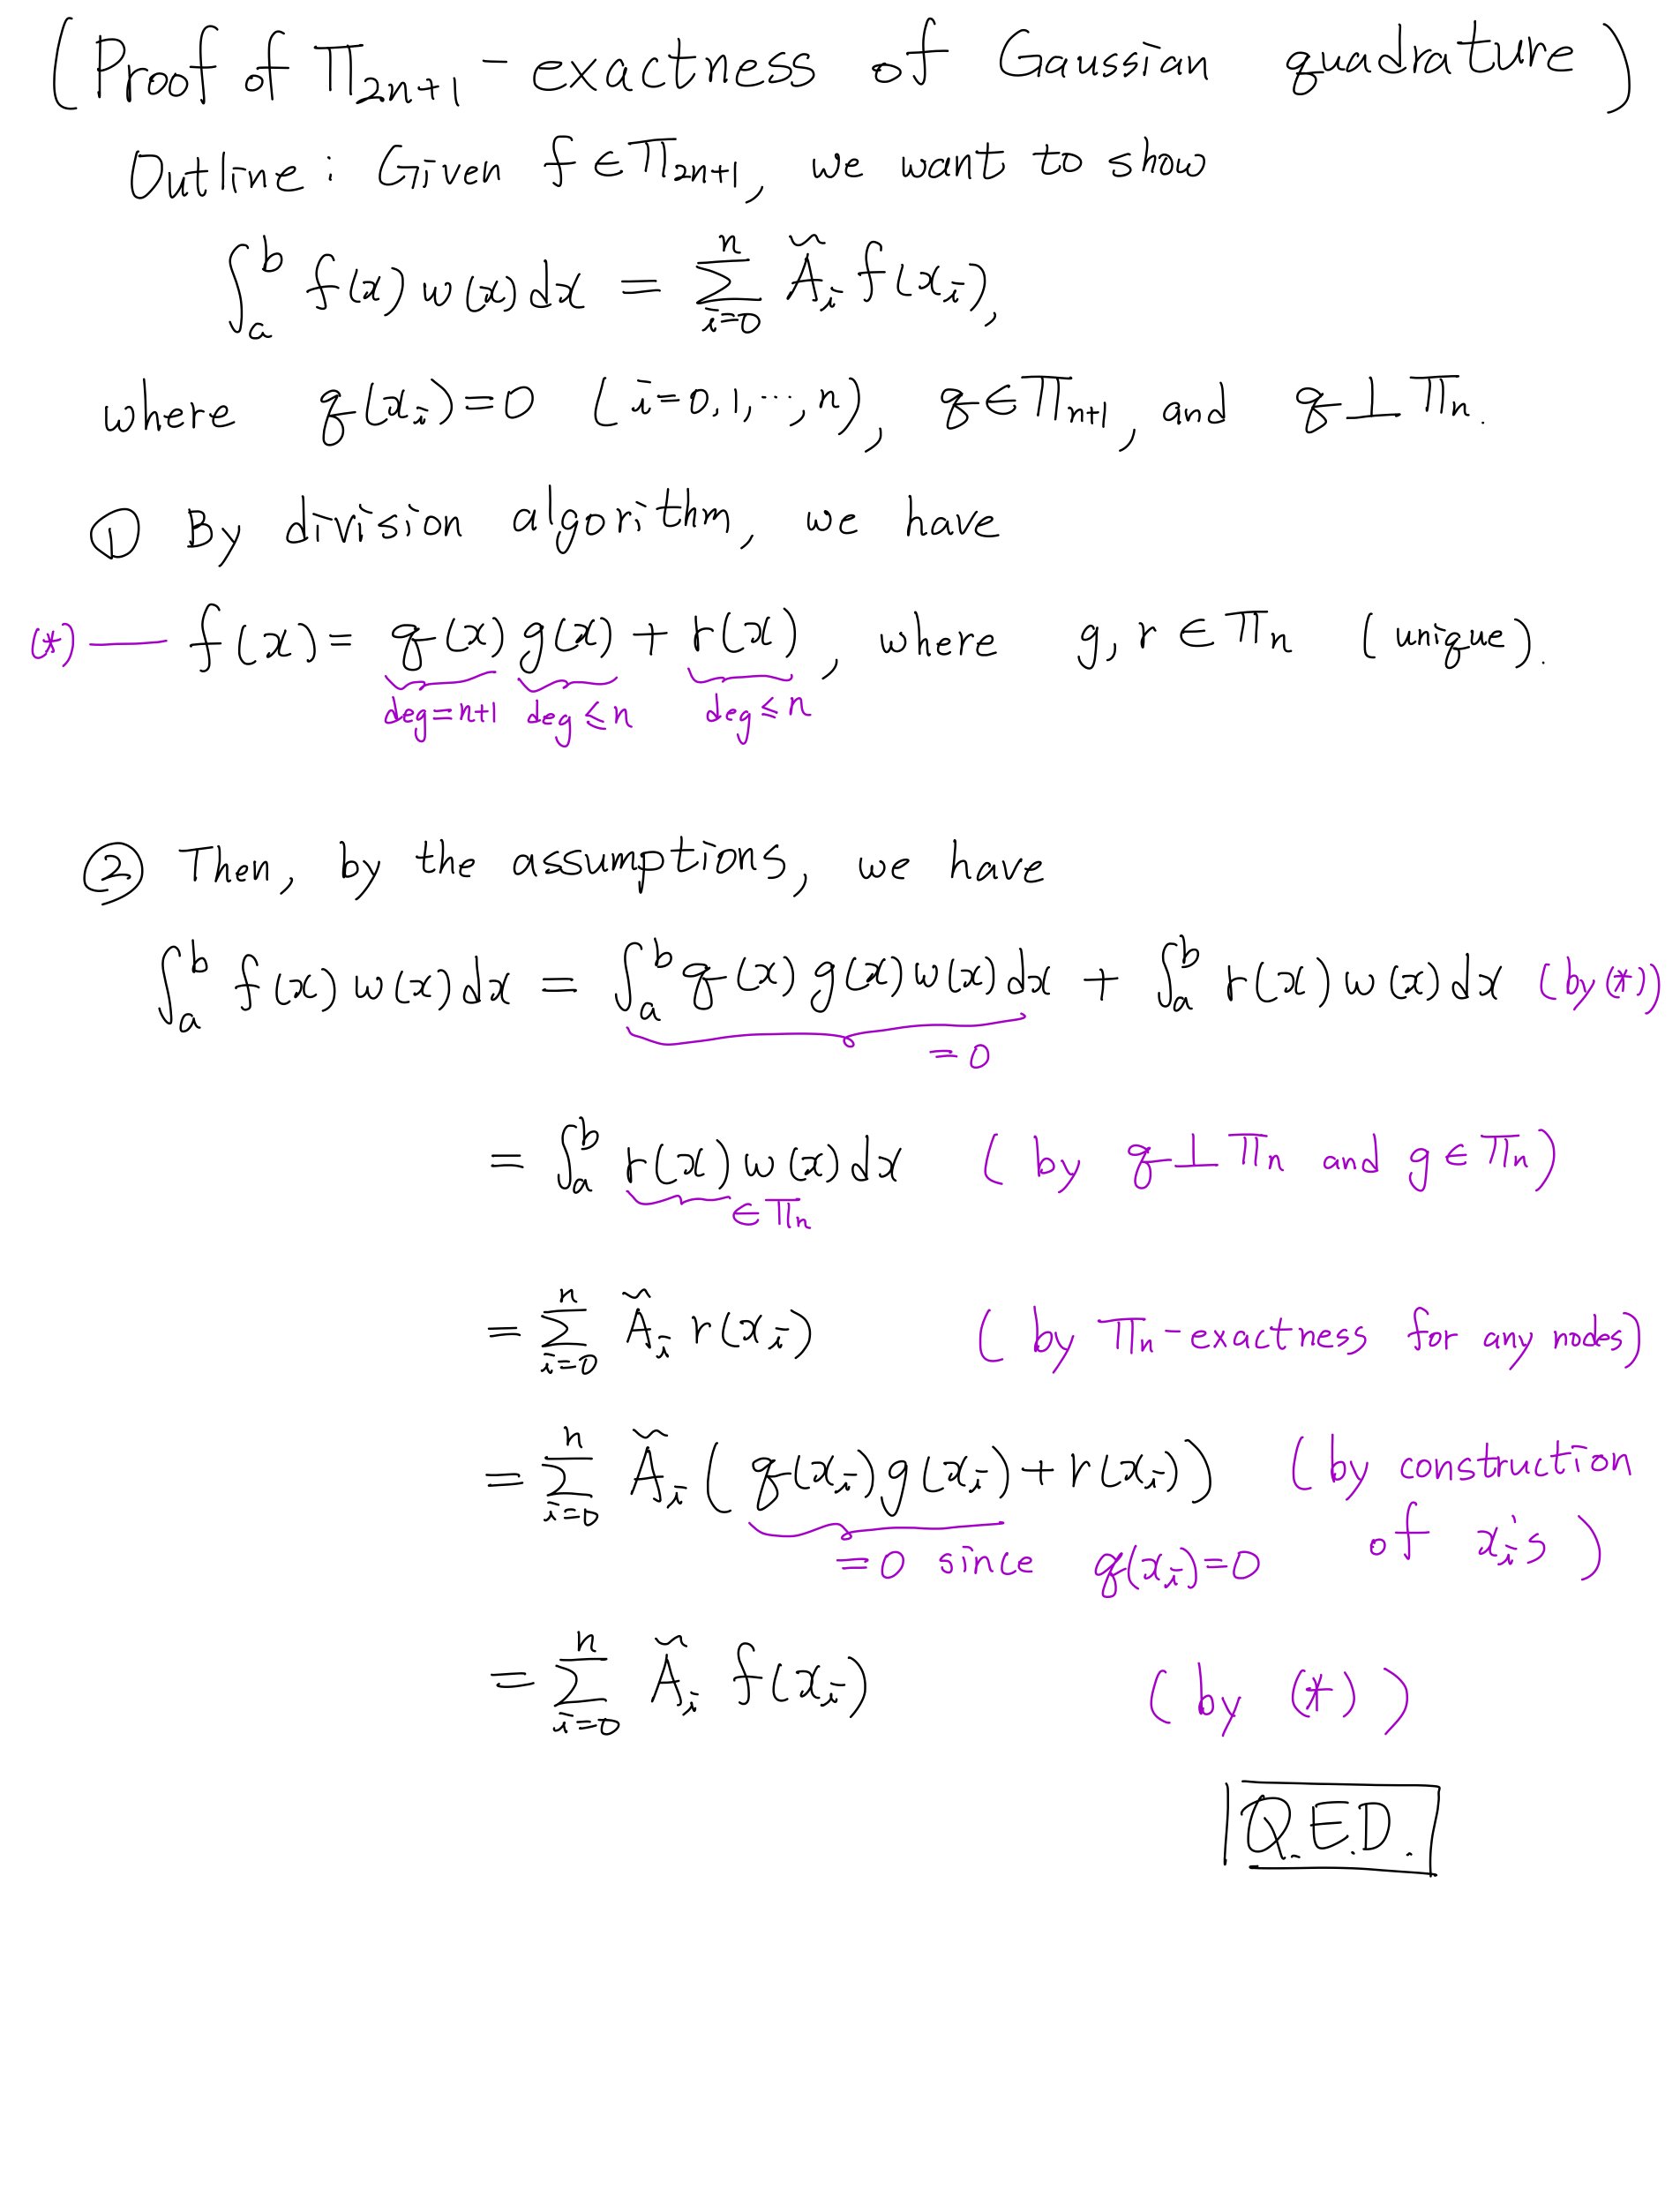 (Proof of Π₂ₙ₊₁-exactness of Gaussian quadrature)
Outline : Given f ∈ Π₂ₙ₊₁, we want to show
∫ₐᵇ f(x) w(x) dx = Σᵢ₌₀ⁿ Ãᵢ f(xᵢ),
where q(xᵢ)=0 (i=0,1,⋯,n), q∈Πₙ₊₁, and q⊥Πₙ.
① By division algorithm, we have
(*) — f(x) = q(x) g(x) + r(x), where g, r ∈ Πₙ (unique).
deg=n+1 deg≤n deg≤n
② Then, by the assumptions, we have
∫ₐᵇ f(x) w(x) dx = ∫ₐᵇ q(x) g(x) w(x) dx + ∫ₐᵇ r(x) w(x) dx (by (*))
=0
= ∫ₐᵇ r(x) w(x) dx (by q⊥Πₙ and g∈Πₙ)
∈Πₙ
= Σᵢ₌₀ⁿ Ãᵢ r(xᵢ) (by Πₙ-exactness for any nodes)
= Σᵢ₌₀ⁿ Ãᵢ (q(xᵢ)g(xᵢ)+r(xᵢ)) (by construction
=0 since q(xᵢ)=0 of xᵢ's)
= Σᵢ₌₀ⁿ Ãᵢ f(xᵢ) (by (*))
Q.E.D.